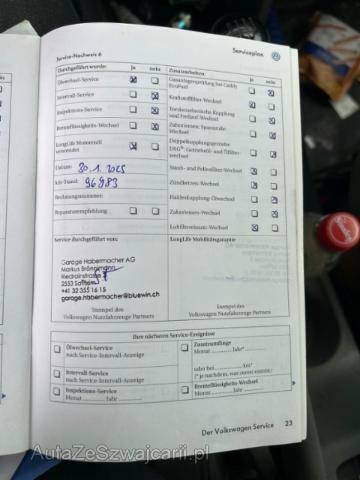 Service-Nachweis 6
Serviceplan
Durchgeführt wurde: ja nein
Ölwechsel-Service
Intervall-Service
Inspektions-Service
Bremsflüssigkeits-Wechsel
LongLife Motorenöl
verwendet
Datum: 30.1.2025
km-Stand: 96983
Rechnungsnummer:
Reparaturempfehlung
Zusatzarbeiten: ja nein
Gasanlagenprüfung bei Caddy
EcoFuel
Kraftstofffilter-Wechsel
Zahnriemen-Spannrolle-
Wechsel
Doppelkupplungsgetriebe
DSG®: Getriebeöl- und Ölfilter-
wechsel
Staub- und Pollenfilter-Wechsel
Zündkerzen-Wechsel
Haldexkupplung Ölwechsel
Zahnriemen-Wechsel
Luftfiltereinsatz-Wechsel
Service durchgeführt von:
LongLife Mobilitätsgarantie
Garage Habermacher AG
Markus Brönnimann
2553 Safnern
+41 32 355 16 15
garage.habermacher@bluewin.ch
Stempel des
Volkswagen Nutzfahrzeuge Partners
Stempel des
Volkswagen Nutzfahrzeuge Partners
Ihre nächsten Service-Ereignisse
Ölwechsel-Service
nach Service-Intervall-Anzeige
Intervall-Service
nach Service-Intervall-Anzeige
Inspektions-Service
Monat Jahr
Zusatzumfänge
Monat Jahr*
oder bei km*
(* je nachdem, was zuerst eintritt)
Bremsflüssigkeits-Wechsel
Monat Jahr
Der Volkswagen Service 23
AutaZeSzwajcarii.pl